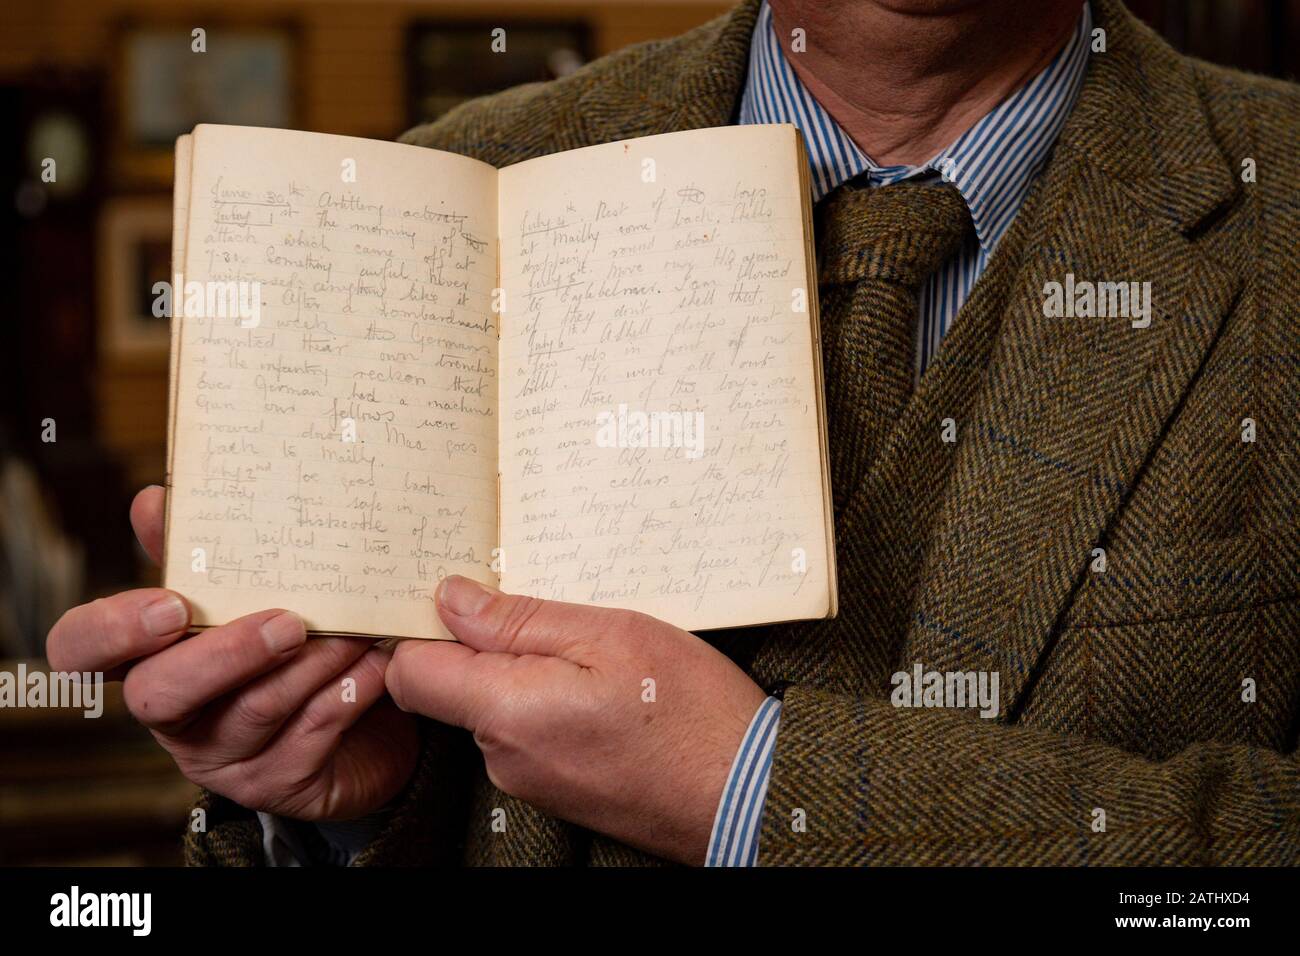 June 30th Artillery activity
July 1st The morning of the
attack which came off at
7-30. Something awful. Never
witnessed anything like it
before. After a bombardment
of a week the Germans
mounted their own trenches
+ the infantry reckon that
Ever German had a machine
Gun our fellows were
mowed down. Mac goes
back to Mailly.
July 2nd Joe goes back.
everybody now safe in our
section. of 29th
was killed + two wounded.
July 3rd Move our H.Q.
to Acheonvilles, rotten
July 4th. Rest of the boys
at Mailly come back. Hells
dropping round about
July 5th. Move our H.Q again
to Englebelmer. I am blowed
if they don't shell that.
July 6th A shell drops just
a few yds in front of our
billet. We were all out
except three of the boys one
was wounded
one was hit with a brick
the other O.K. A good job we
are in cellars the stuff
came through a loophole
which lets the light in.
A good job I was
my as a piece of
buried itself in my
alamy
a
alamy
Image ID: 2ATHXD4
www.alamy.com